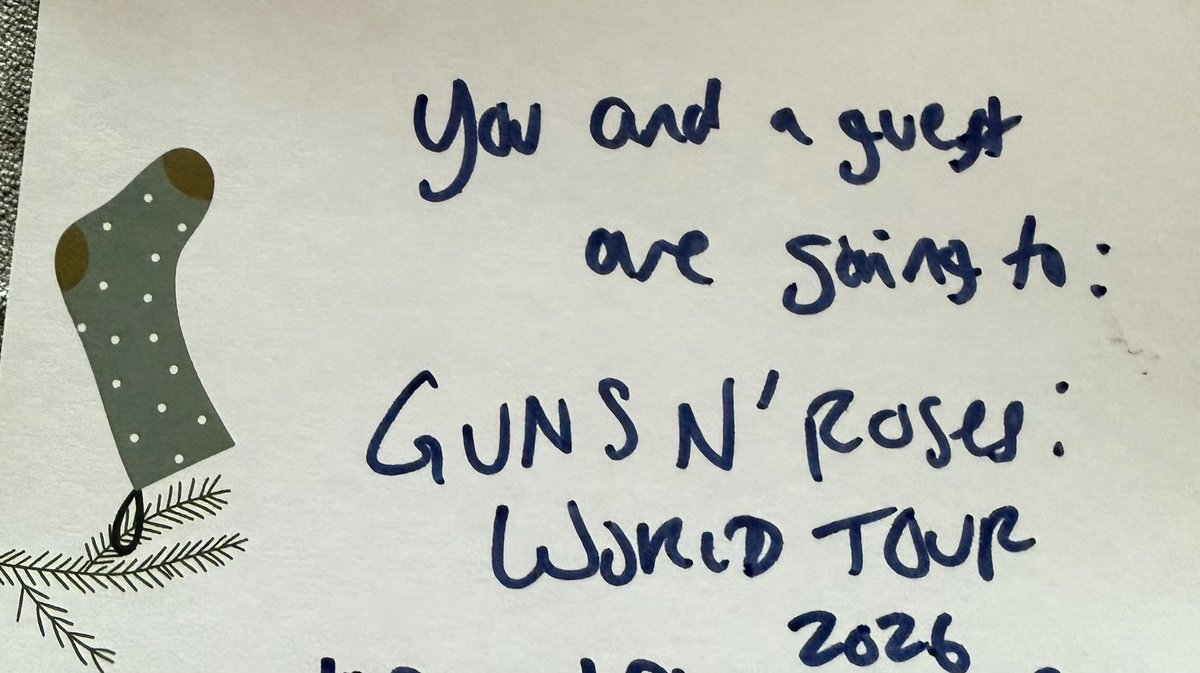 You and a guest
are going to:
GUNS N' ROSES:
WORLD TOUR
2026